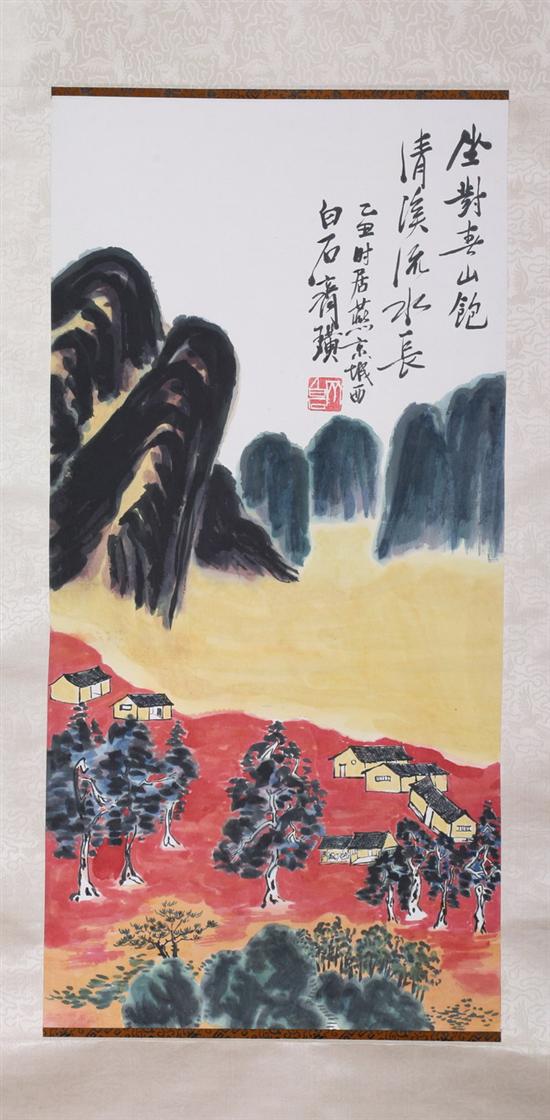 坐對春山飽
清溪流水長
乙丑时居燕京城西
白石齊璜